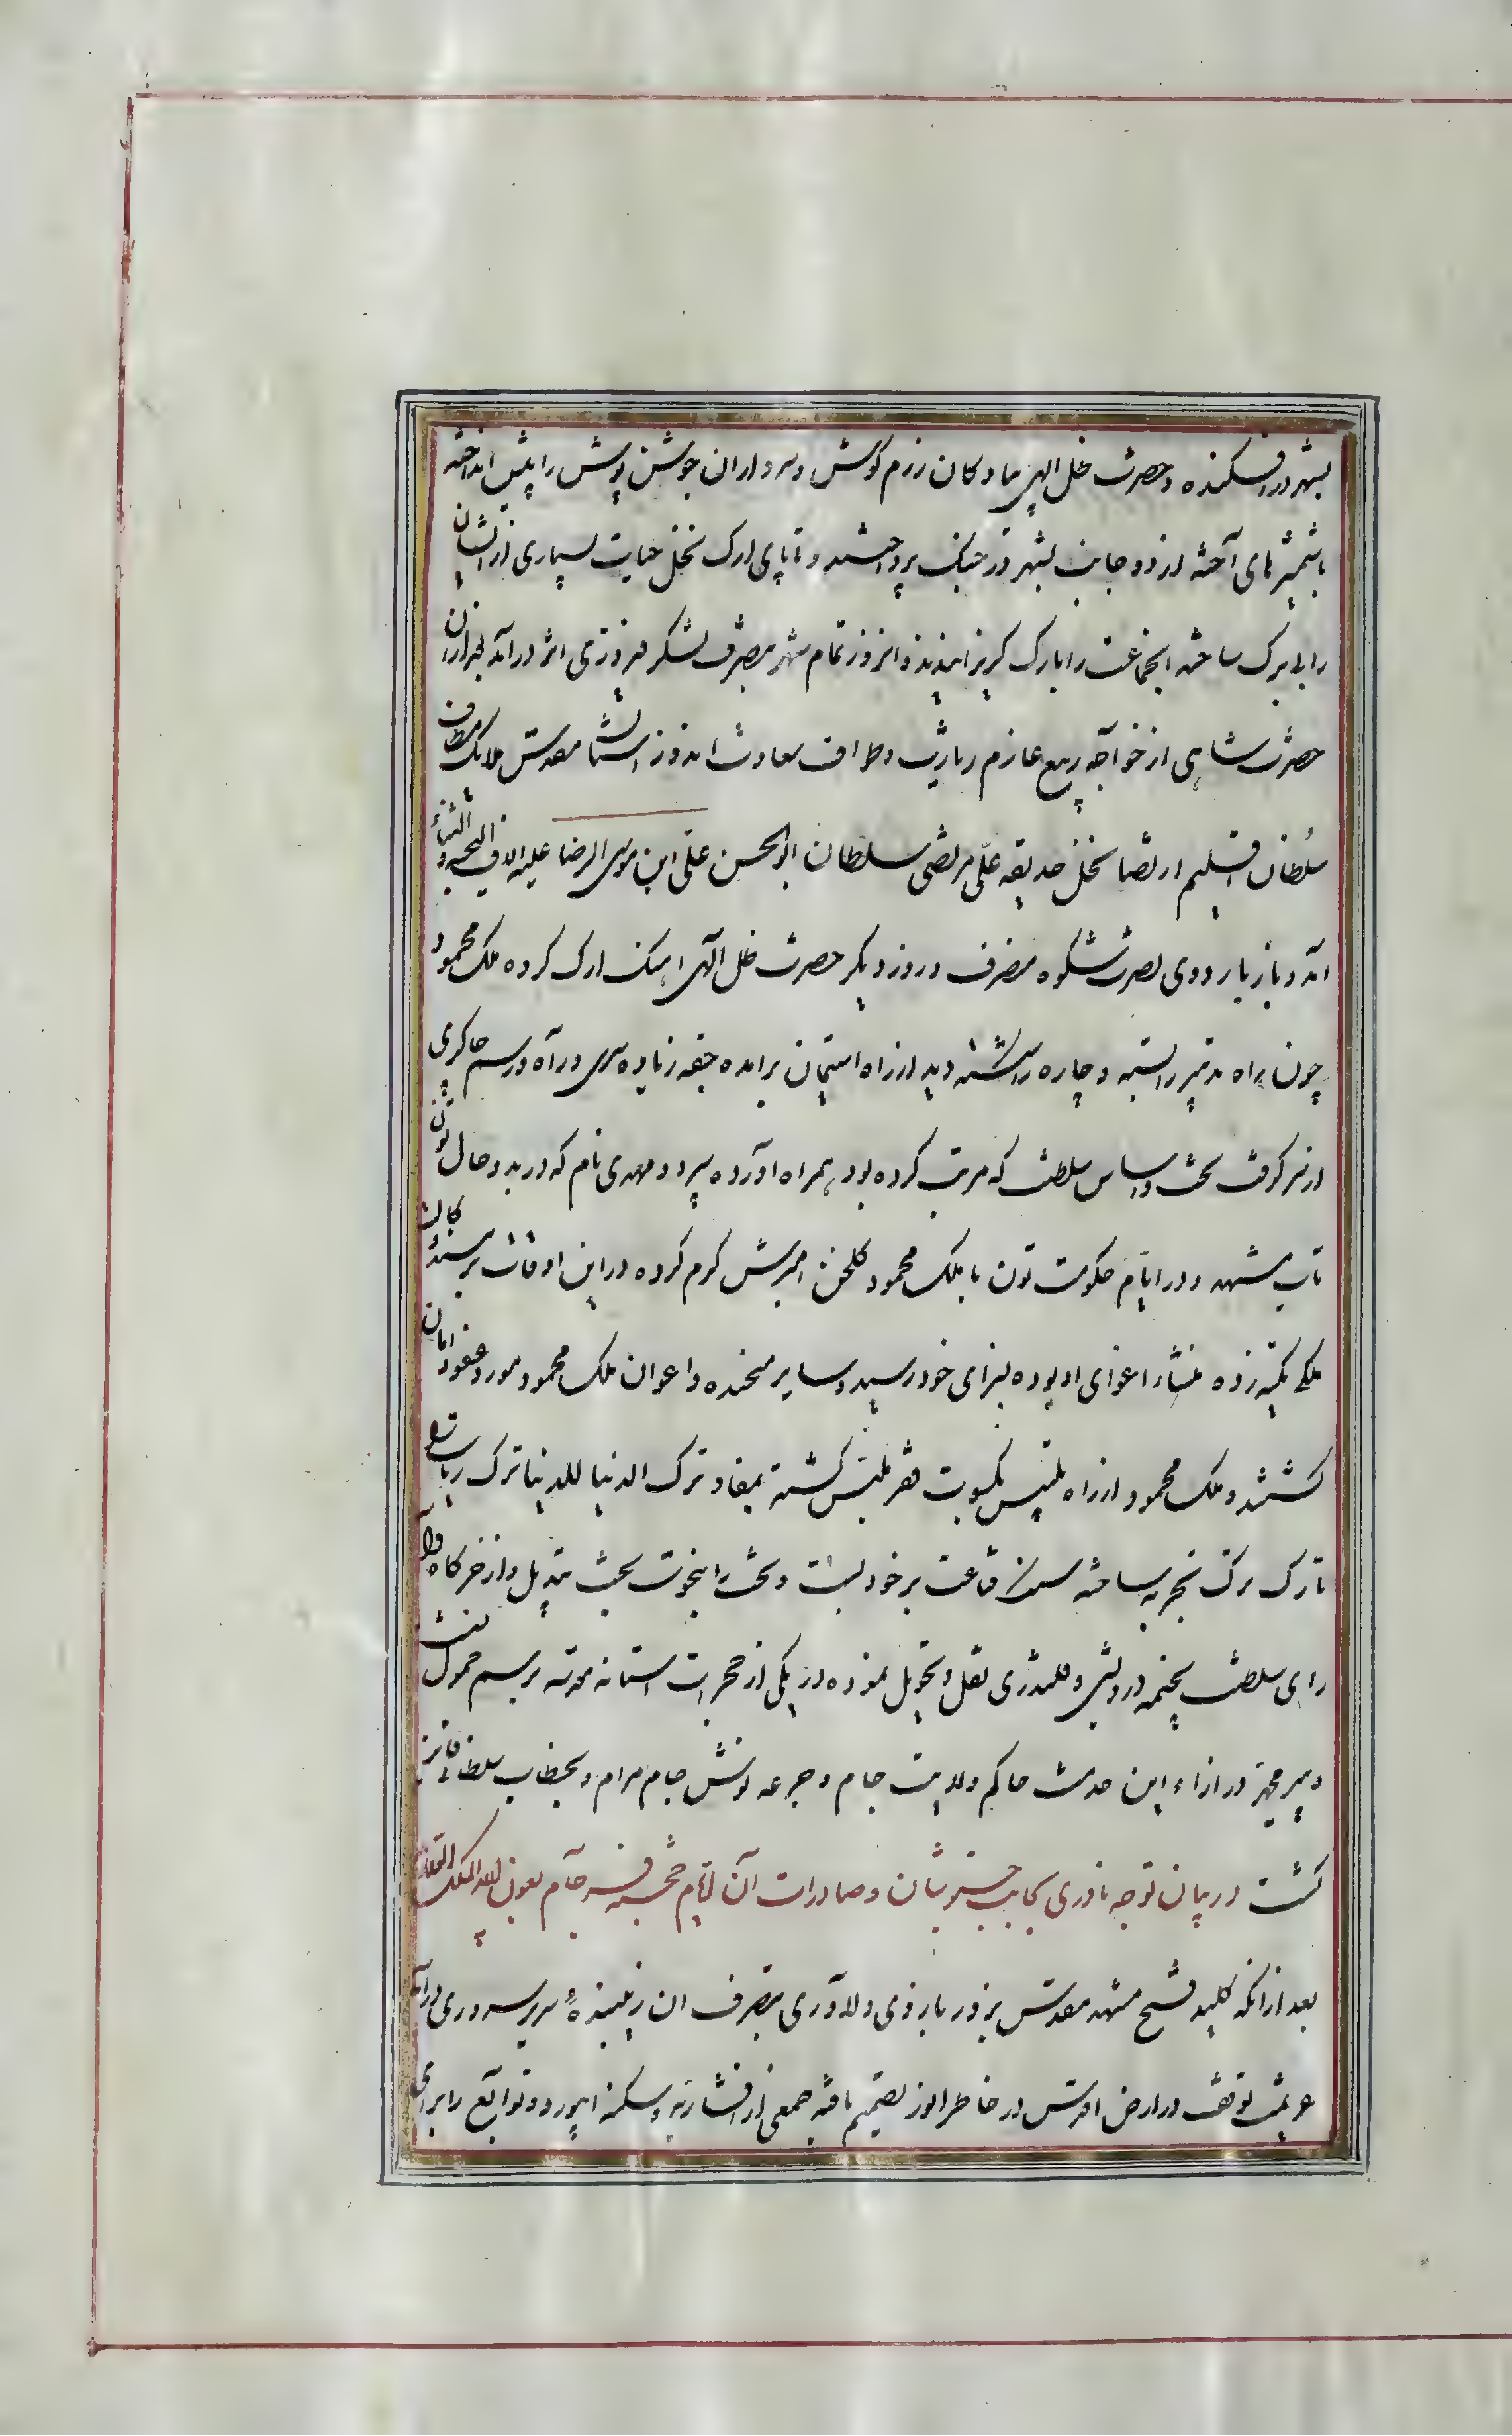 بشهر در افکنده و حضرت ظل الهی پیادگان رزم کوش و سرداران جوشن پوش را پیش انداخته
با شمشیرهای آخته از دو جانب بشهر در جنگ پرداختند و تا پای ارک نخل حیات بسیاری از ایشان
را بی برک ساخته انجماعت را بارک کریزانیدند و انروز تمام شهر بتصرف لشکر فیروزی اثر درآمد بعد ازان
حضرت شاهی از خواجه ربیع عازم زیارت و طواف سعادت اندوز استان مقدس ملایک مطاف
سلطان اقلیم ارتضا نخل حدیقه علی مرتضی سلطان ابوالحسن علی ابن موسی الرضا علیه الاف التحیه و الثناء
آمد و باز باردوی نصرت شکوه منصرف و روز دیکر حضرت ظل الهی اهنک ارک کرده ملک محمود
چون راه تدبیر را بسته و چاره را کسسته دید از راه استیمان برامده جیقه زیاده سری در آه و رسم چاکری
از سر کرفت تخت و اساس سلطنت که مرتب کرده بود همراه اورده سپرد و مهدی نام که در بدو حال تون
تاب مشهد و در ایام حکومت تون با ملک محمود کلخن امیزش کرم کرده در این اوقات بر مسند وکالت
ملکی تکیه زده منشاء اغوای او بوده بسزای خود رسید و سایر متحنده و اعوان ملک محمود مورد عفو و امان
کشتند و ملک محمود از راه تلبیس بکسوت فقر ملبس کشته بمفاد ترک الدنیا للدنیا ترک ریاست
تارک ترک تجرید ساخته قناعت بر خود بست و تخت را بپوست تخت تبدیل و از خرکاه دارا
رای سلطنت بخیمه درویشی و قلندری نقل و تحویل نموده در یکی از حجرات استانه مقدسه برسم خمول نشست
و پیر محمد در ازاء این خدمت حاکم ولایت جام و جرعه نوش جام مرام و بخطاب سلطانی فایز
کشت در بیان توجه نادری بجانب خبوشان و صادرات آن ایام خجسته فرجام بعون الله الملک العلام
بعد از انکه کلید فتح مشهد مقدس بزور بازوی دلاوری بتصرف ان زیبنده سریر سروری درآمد
عزیمت توقف در ارض اقدس در خاطر انور تصمیم یافته جمعی از افشاریه و سکنه ابیورد و توابع را برای